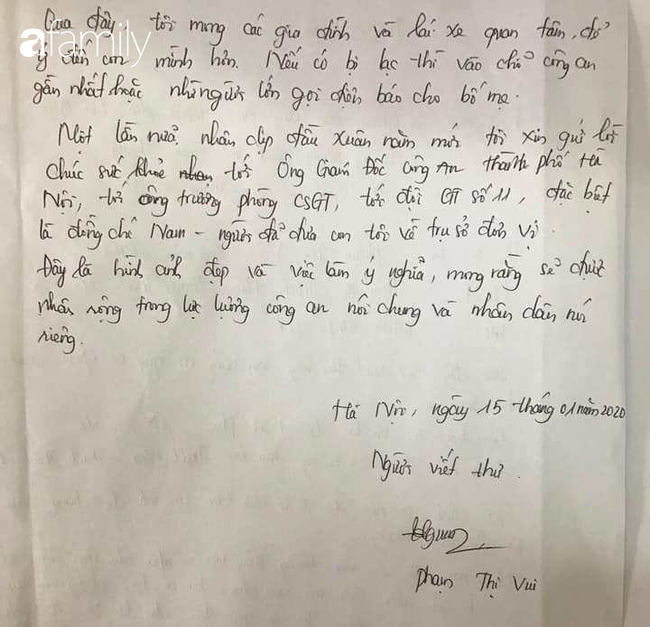 Qua đây tôi mong các gia đình và lái xe quan tâm, để
afamily
ý đến con mình hơn. Nếu có bị lạc thì vào chỗ công an
gần nhất hoặc người lớn gọi điện báo cho bố mẹ.
Một lần nữa, nhân dịp đầu xuân năm mới tôi xin gửi lời
chúc sức khỏe tới Ông Giám Đốc công An thành phố Hà
Nội, tới ông trưởng phòng CSGT, tới đội GT số 11, đặc biệt
là đồng chí Nam - người đã đưa con tôi về trụ sở đơn vị.
Đây là hình ảnh đẹp và việc làm ý nghĩa, mong rằng sẽ được
nhân rộng trong lực lượng công an nói chung và nhân dân nói
riêng.
Hà Nội, ngày 15 tháng 01 năm 2020
Người viết thư.
Phạm Thị Vui